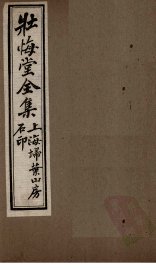 壯悔堂全集
上海掃葉山房
石印